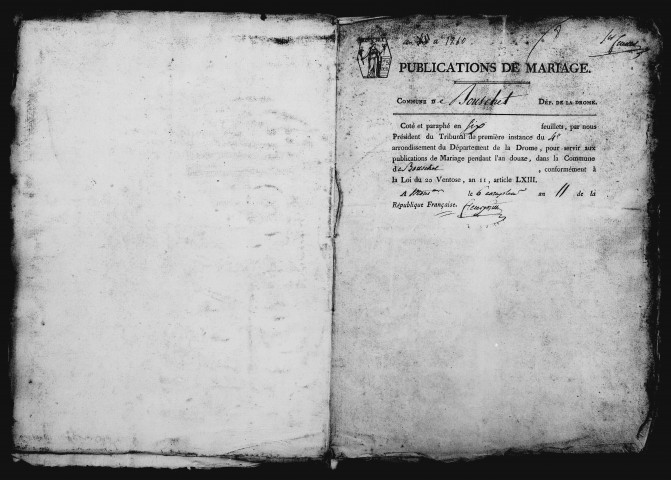 PUBLICATIONS DE MARIAGE.
COMMUNE De Bouchet DÉP. DE LA DROME.
Coté et paraphé en six feuillets, par nous
Président du Tribunal de première instance du 4e
arrondissement du Département de la Drome, pour servir aux
publications de Mariage pendant l'an douze, dans la Commune
de Bouchet , conformément à
la Loi du 20 Ventose, an 11, article LXIII.
A le 6 an 11 de la
République Française.